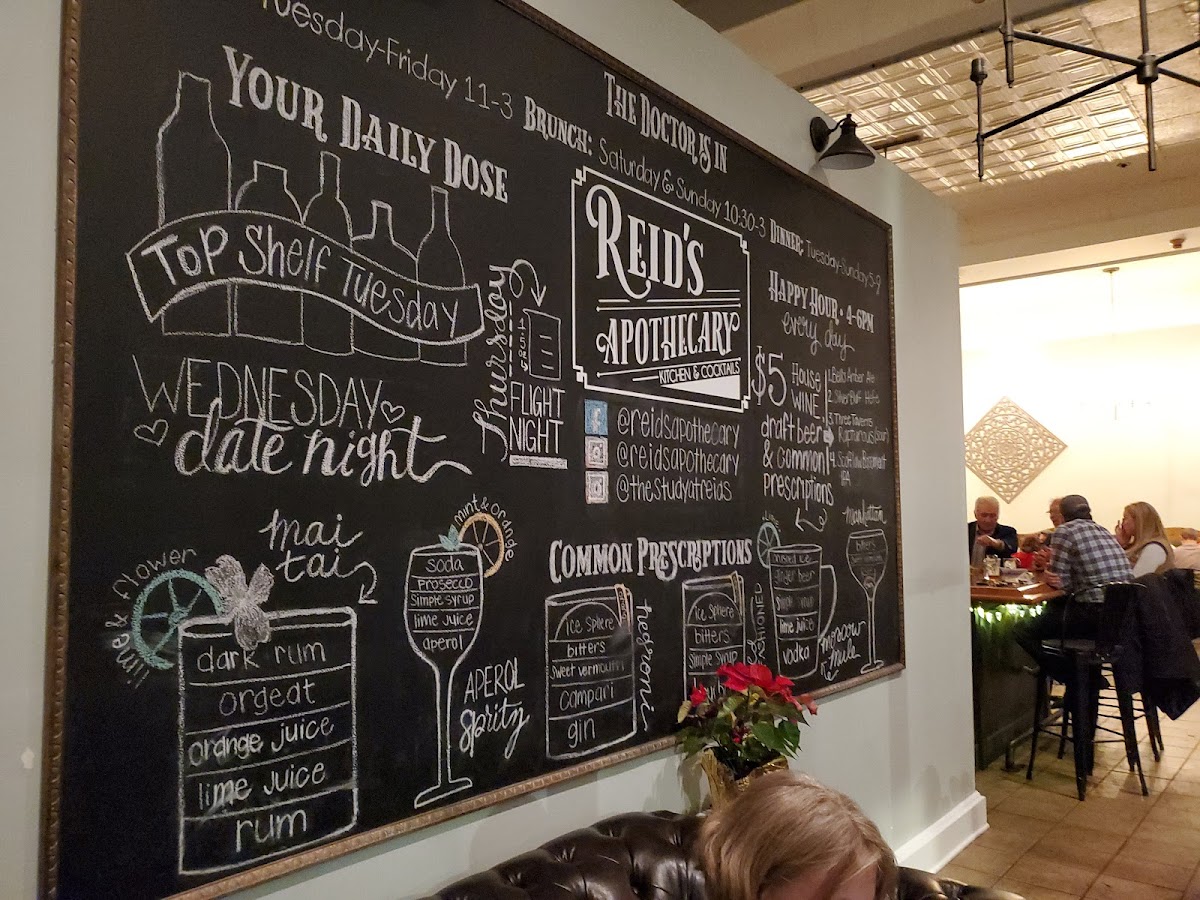 Tuesday-Friday 11-3
THE DOCTOR IS IN
BRUNCH: Saturday & Sunday 10:30-3
DINNER: Tuesday-Sunday 5-9
YOUR DAILY DOSE
TOP Shelf Tuesday
WEDNESDAY
date night
Thursday
FLIGHT
NIGHT
REID'S
APOTHECARY
KITCHEN & COCKTAILS
@reidsapothecary
@reidsapothecary
@thestudyatreids
HAPPY HOUR • 4-6PM
every day
$5 HOUSE
WINE,
draft beer
& common
prescriptions
1. Bella Amber Ale
2. Silver Bluff
3. Three Taverns
Rapturous (sour)
4. Basement
IPA
COMMON PRESCRIPTIONS
mai
tai
lime & flower
dark rum
orgeat
orange juice
lime juice
rum
mint & orange
soda
prosecco
simple syrup
lime juice
aperol
APEROL
Spritz
ice sphere
bitters
sweet vermouth
campari
gin
negroni
ice sphere
bitters
simple syrup
FASHIONED
lime
crushed ice
ginger beer
simple syrup
lime juice
vodka
moscow
mule
manhattan
bitters